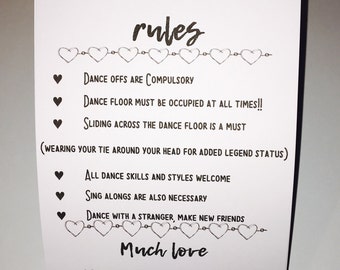 rules
Dance offs are Compulsory
Dance floor must be occupied at all times!!
Sliding across the dance floor is a must
(wearing your tie around your head for added legend status)
All dance skills and styles welcome
Sing alongs are also necessary
Dance with a stranger, make new friends
Much love